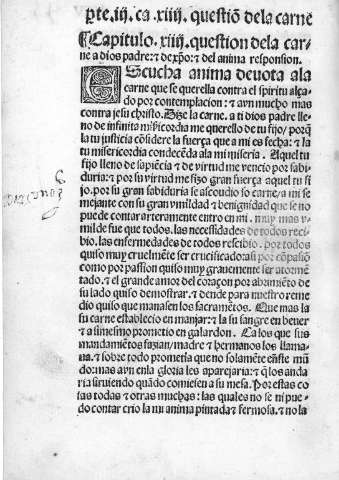 pte.iij.ca.xiiij.questiõ dela carne
¶Capitulo.xiiij.question dela car-
ne a dios padre:⁊ de xp̃o:⁊ del anima responsion.
EScucha anima deuota ala
carne que se querella contra el spiritu alça-
do por contemplacion:⁊ avn mucho mas
contra jesu christo. Dize la carne. a ti dios padre lle-
no de infinita mīcordia me querello de tu fijo/ porq̃
la tu justicia cõsidere la fuerça que a mi es fecha:⁊ la
tu misericordia condeceda ala mi miseria. Aquel tu
fijo lleno de sapiēcia ⁊ de virtud me vencio por sabi-
duria:⁊ por su virtud me fizo gran fuerça aquel tu si
jo.por su gran sabiduria se ascondio so carne/a mi se
mejante con su gran vmildad ⁊ benignidad que se no
puede contar arteramente entro en mi. muy mas v-
milde fue que todos.las necessidades de todos reci-
bio.las enfermedades de todos rescibio. por todos
quiso muy cruelmẽte ser crucificado:assi por cõpassiõ
como por passion quiso muy grauemente ser atormẽ
tado.⁊ el grande amor del coraçon por abrimiẽto de
su lado quiso demostrar.⁊ dende para nuestro reme
dio quiso que manassen los sacramẽtos. Que mas la
su carne establecio en manjar:⁊ la su sangre en beuer
⁊ a si mesmo prometio en galardon. Ca los que sus
mandamiẽtos fazian/madre ⁊ hermanos los llama-
ua.⁊ sobre todo prometia que no solamẽte eneste mũ
do:mas avn enla gloria les aparejaria:⁊ q̃ los anda
ria siruiendo quãdo comiesen a su mesa. Por estas co
sas todas ⁊ otras muchas: las quales no se ni pue-
do contar crio la mi anima pintada ⁊ fermosa.⁊ no la